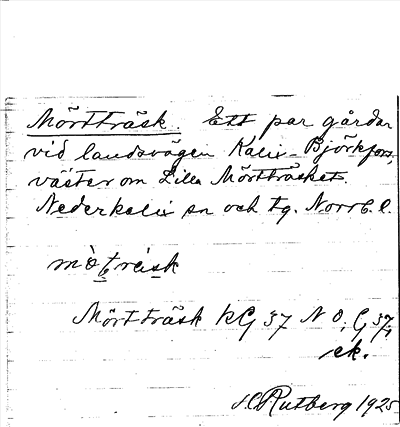 Mörtträsk. Ett par gårdar
vid landsvägen Kalix-Björkfors
väster om Lilla Mörtträsket.
Nederkalix sn och tg. Norrb. l.
Mörtträsk kG 37 N O, G 37,
ek.
H. Rutberg 1925